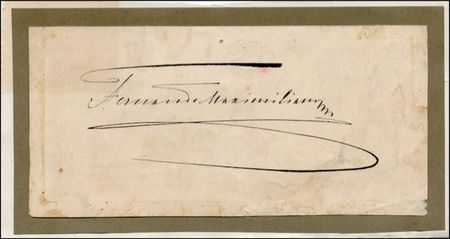 Fernando Maximiliano